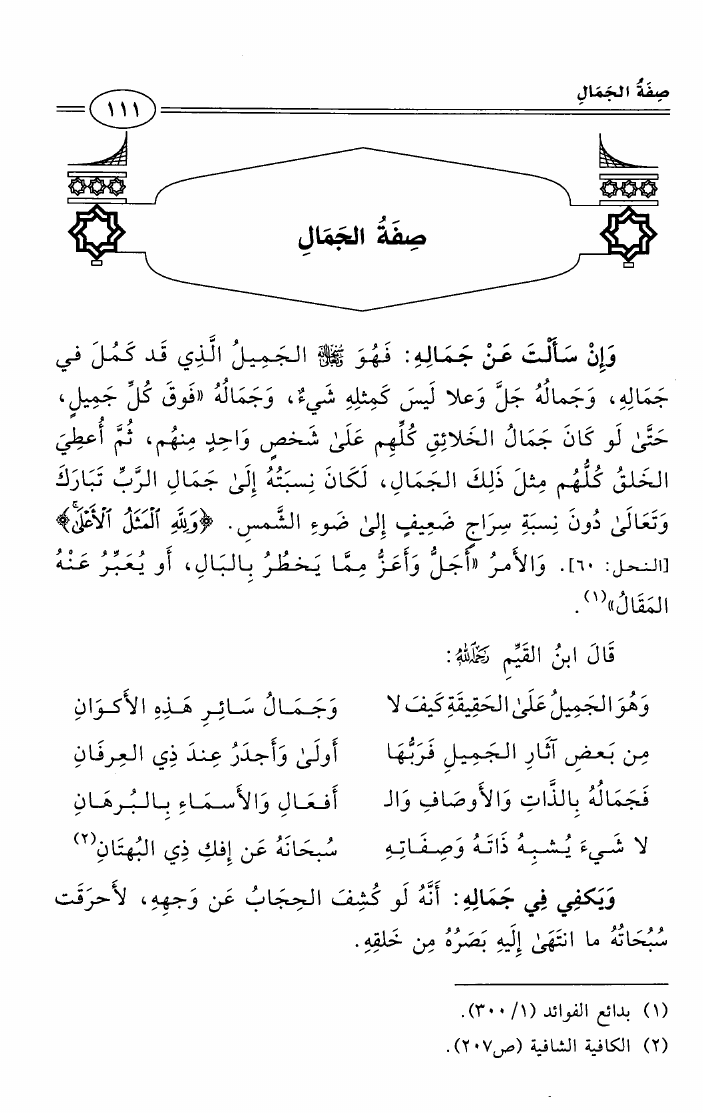 صِفَةُ الجَمَالِ
١١١
صِفَةُ الجَمَالِ
وَإِنْ سَأَلْتَ عَنْ جَمَالِهِ: فَهُوَ ﷻ الجَمِيلُ الَّذِي قَد كَمُلَ في
جَمَالِهِ، وَجَمالُهُ جَلَّ وَعلا لَيسَ كَمِثلِهِ شَيءٌ، وَجَمَالُهُ «فَوقَ كُلِّ جَمِيلٍ،
حَتَّىٰ لَو كَانَ جَمَالُ الخَلائِقِ كُلِّهِم عَلَىٰ شَخصٍ وَاحِدٍ مِنهُم، ثُمَّ أُعطِيَ
الخَلقُ كُلُّهُم مِثلَ ذَلِكَ الجَمَالِ، لَكَانَ نِسبَتُهُ إِلَىٰ جَمَالِ الرَّبِّ تَبَارَكَ
وَتَعَالَىٰ دُونَ نِسبَةِ سِرَاجٍ ضَعِيفٍ إِلىٰ ضَوءِ الشَّمسِ. ﴿وَلِلَّهِ ٱلْمَثَلُ ٱلْأَعْلَىٰ﴾
[النحل: ٦٠]. وَالأَمرُ «أَجَلُّ وَأَعَزُّ مِمَّا يَخطُرُ بِالبَالِ، أَو يُعَبِّرُ عَنْهُ
المَقَالُ»(١).
قَالَ ابنُ القَيِّمِ رَحِمَهُ اللهُ:
وَهُوَ الجَمِيلُ عَلَىٰ الحَقِيقَةِ كَيفَ لا وَجَمَالُ سَائِرِ هَذِهِ الأَكوَانِ
مِن بَعضِ آثَارِ الجَمِيلِ فَرَبُّهَا أَولَىٰ وَأَجدَرُ عِندَ ذِي العِرفَانِ
فَجَمَالُهُ بِالذَّاتِ وَالأَوصَافِ وَالـ أَفعَالِ وَالأَسمَاءِ بِالبُرهَانِ
لا شَيءَ يُشبِهُ ذَاتَهُ وَصِفَاتِهِ سُبحَانَهُ عَن إِفكِ ذِي البُهتَانِ(٢)
وَيَكفِي فِي جَمَالِهِ: أَنَّهُ لَو كُشِفَ الحِجَابُ عَن وَجهِهِ، لأَحرَقَت
سُبُحَاتُهُ ما انتَهَىٰ إِلَيهِ بَصَرُهُ مِن خَلقِهِ.
(١) بدائع الفوائد (١/ ٣٠٠).
(٢) الكافية الشافية (ص٢٠٧).